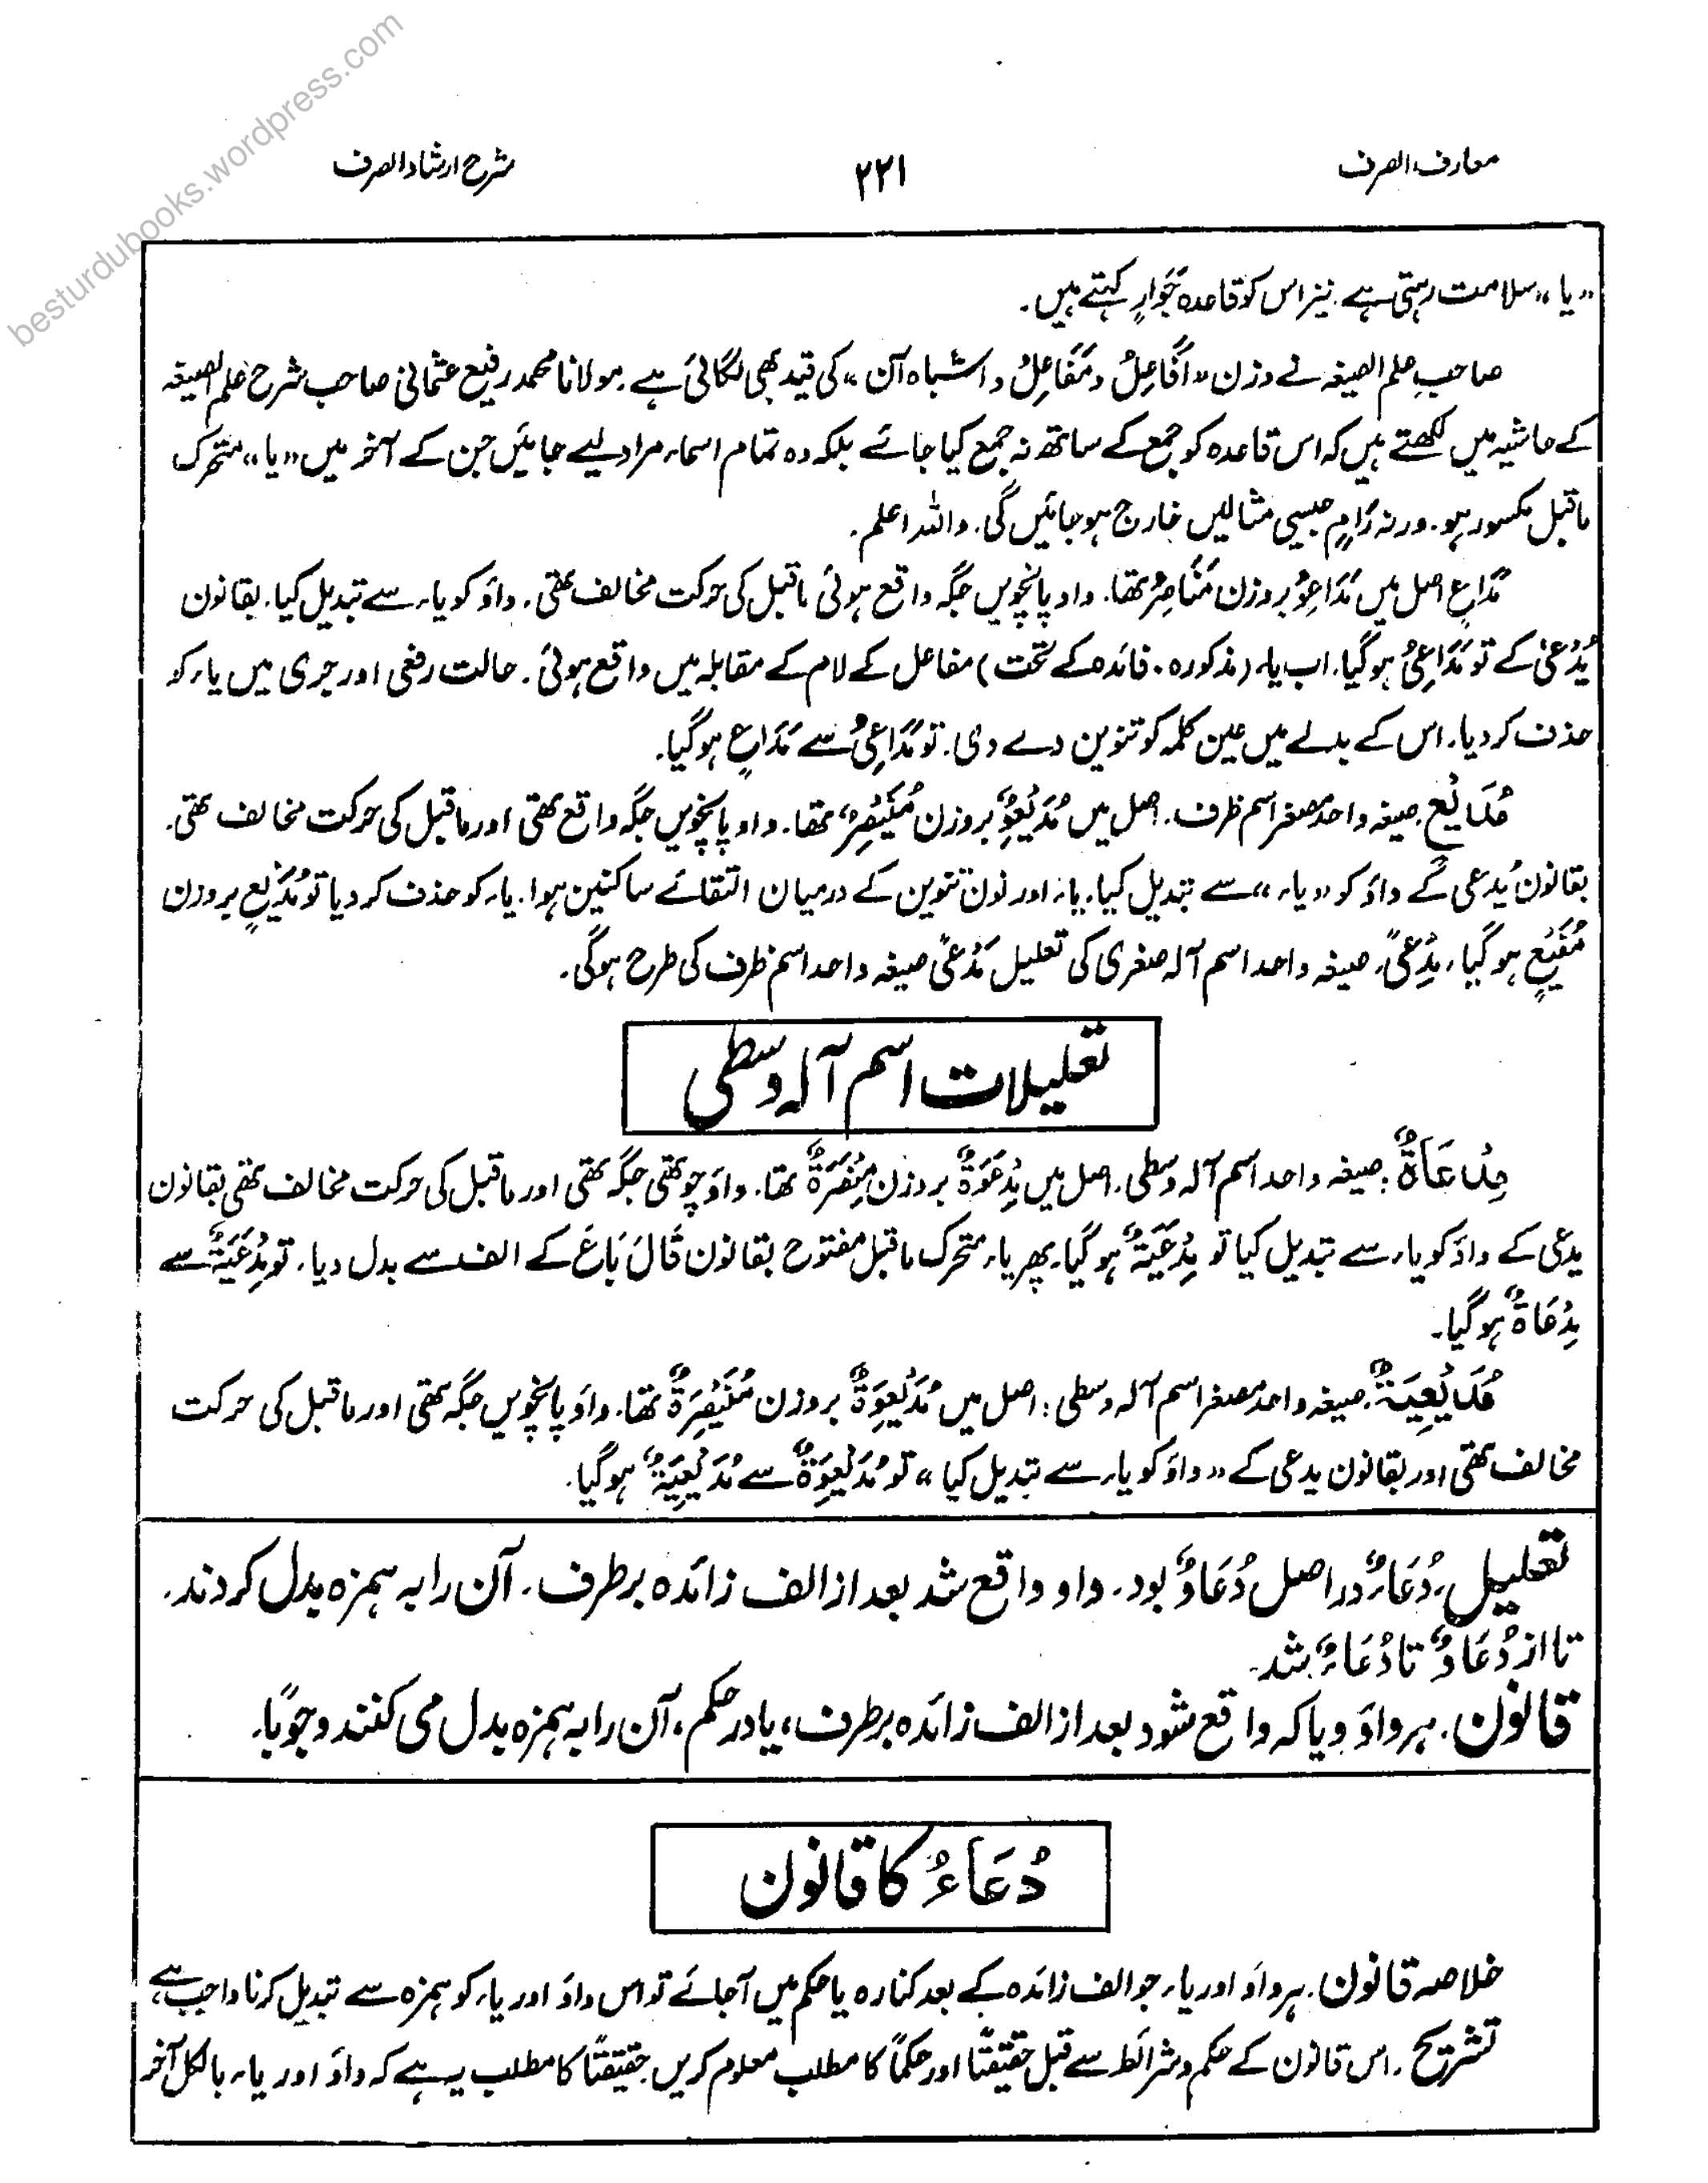 besturdubooks.wordpress.com
معارف الصرف ۲۲۱ شرح ارشاد الصرف
”یا“ سلامت رہتی ہے۔ نیز اس کو قاعدہ جَوَارٍ کہتے ہیں۔
صاحبِ علم الصیغہ نے وزن ”اَفَاعِلُ و مَفَاعِلُ و اشباہ آن“ کی قید بھی لگائی ہے۔ مولانا محمد رفیع عثمانی صاحب شرح علم الصیغہ
کے حاشیہ میں لکھتے ہیں کہ اس قاعدہ کو جمع کے ساتھ نہ جمع کیا جائے بلکہ وہ تمام اسماء مراد لیے جائیں جن کے آخر میں ”یا“ متحرک
ماقبل مکسور ہو۔ ورنہ رَامٍ جیسی مثالیں خارج ہوجائیں گی۔ واللہ اعلم۔
مَدَاعٍ اصل میں مَدَاعِوُ بروزن مَنَاصِرُ تھا۔ واو پانچویں جگہ واقع ہوئی ماقبل کی حرکت مخالف تھی۔ واؤ کو یاء سے تبدیل کیا۔ بقانون
یُدْعیٰ کے تو مَدَاعِیُ ہوگیا۔ اب یاء (مذکورہ فائدہ کے تحت) مفاعل کے لام کے مقابلہ میں واقع ہوئی۔ حالت رفعی اور جری میں یاء کو
حذف کردیا۔ اس کے بدلے میں عین کلمہ کو تنوین دے دی۔ تو مَدَاعِیُ سے مَدَاعٍ ہوگیا۔
مُدَیْعٍ صیغہ واحد مصغر اسم ظرف۔ اصل میں مُدَیْعِوٌ بروزن مُنَیْصِرٌ تھا۔ واو پانچویں جگہ واقع تھی اور ماقبل کی حرکت مخالف تھی۔
بقانون یُدعی کے واؤ کو ”یاء“ سے تبدیل کیا۔ یاء اور نون تنوین کے درمیان التقائے ساکنین ہوا۔ یاء کو حذف کردیا تو مُدَیْعٍ بروزن
مُفَیْعٍ ہوگیا، مِدْعًی، صیغہ واحد اسم آلہ صغری کی تعلیل مَدْعًی صیغہ واحد اسم ظرف کی طرح ہوگی۔
تعلیلات اسم آلہ وسطی
مِدْعَاةٌ: صیغہ واحد اسم آلہ وسطی۔ اصل میں مِدْعَوَةٌ بروزن مِنْصَرَةٌ تھا۔ واؤ چوتھی جگہ تھی اور ماقبل کی حرکت مخالف تھی بقانون
یدعی کے واؤ کو یاء سے تبدیل کیا تو مِدْعَیَةٌ ہوگیا۔ پھر یاء متحرک ماقبل مفتوح بقانون قَالَ بَاعَ کے الف سے بدل دیا۔ تو مِدْعَیَةٌ سے
مِدْعَاةٌ ہوگیا۔
مُدَیْعِیَةٌ۔ صیغہ واحد مصغر اسم آلہ وسطی: اصل میں مُدَیْعِوَةٌ بروزن مُنَیْصِرَةٌ تھا۔ واؤ پانچویں جگہ تھی اور ماقبل کی حرکت
مخالف تھی اور بقانون یدعی کے ”واؤ کو یاء سے تبدیل کیا“ تو مُدَیْعِوَةٌ سے مُدَیْعِیَةٌ ہوگیا۔
تعلیل۔ دُعَاءٌ دراصل دُعَاوٌ بود۔ واو واقع شد بعد از الف زائدہ برطرف۔ آن را بہ ہمزہ بدل کردند۔
تا از دُعَاوٌ تا دُعَاءٌ شد۔
قانون۔ ہر واؤ و یا کہ واقع شود بعد از الف زائدہ برطرف، یا در حکم، آن را بہ ہمزہ بدل می کنند وجوبًا۔
دُعَاءُ کا قانون
خلاصہ قانون۔ ہر واؤ اور یاء جو الف زائدہ کے بعد کنارہ یا حکم میں آجائے تو اس واؤ اور یاء کو ہمزہ سے تبدیل کرنا واجب ہے
تشریح۔ اس قانون کے حکم و شرائط سے قبل حقیقتًا اور حکمًا کا مطلب معلوم کریں حقیقتًا کا مطلب یہ ہے کہ واؤ اور یاء بالکل آخر